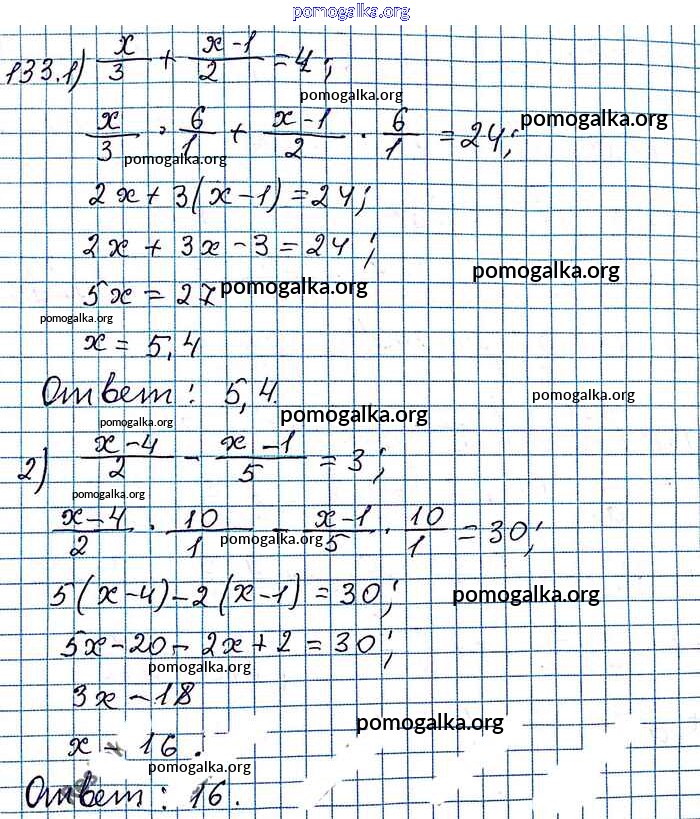 pomogalka.org
133.1) x/3 + x-1/2 = 4;
pomogalka.org
pomogalka.org
x/3 · 6/1 + x-1/2 · 6/1 = 24;
pomogalka.org
2x + 3(x-1) = 24;
2x + 3x - 3 = 24;
pomogalka.org
5x = 27
pomogalka.org
pomogalka.org
x = 5,4
pomogalka.org
Ответ: 5,4.
pomogalka.org
pomogalka.org
2) x-4/2 - x-1/5 = 3;
pomogalka.org
x-4/2 · 10/1 - x-1/5 · 10/1 = 30;
pomogalka.org
5(x-4)-2(x-1) = 30;
pomogalka.org
5x-20-2x+2 = 30;
pomogalka.org
3x-18
pomogalka.org
x - 16.
pomogalka.org
Ответ: 16.